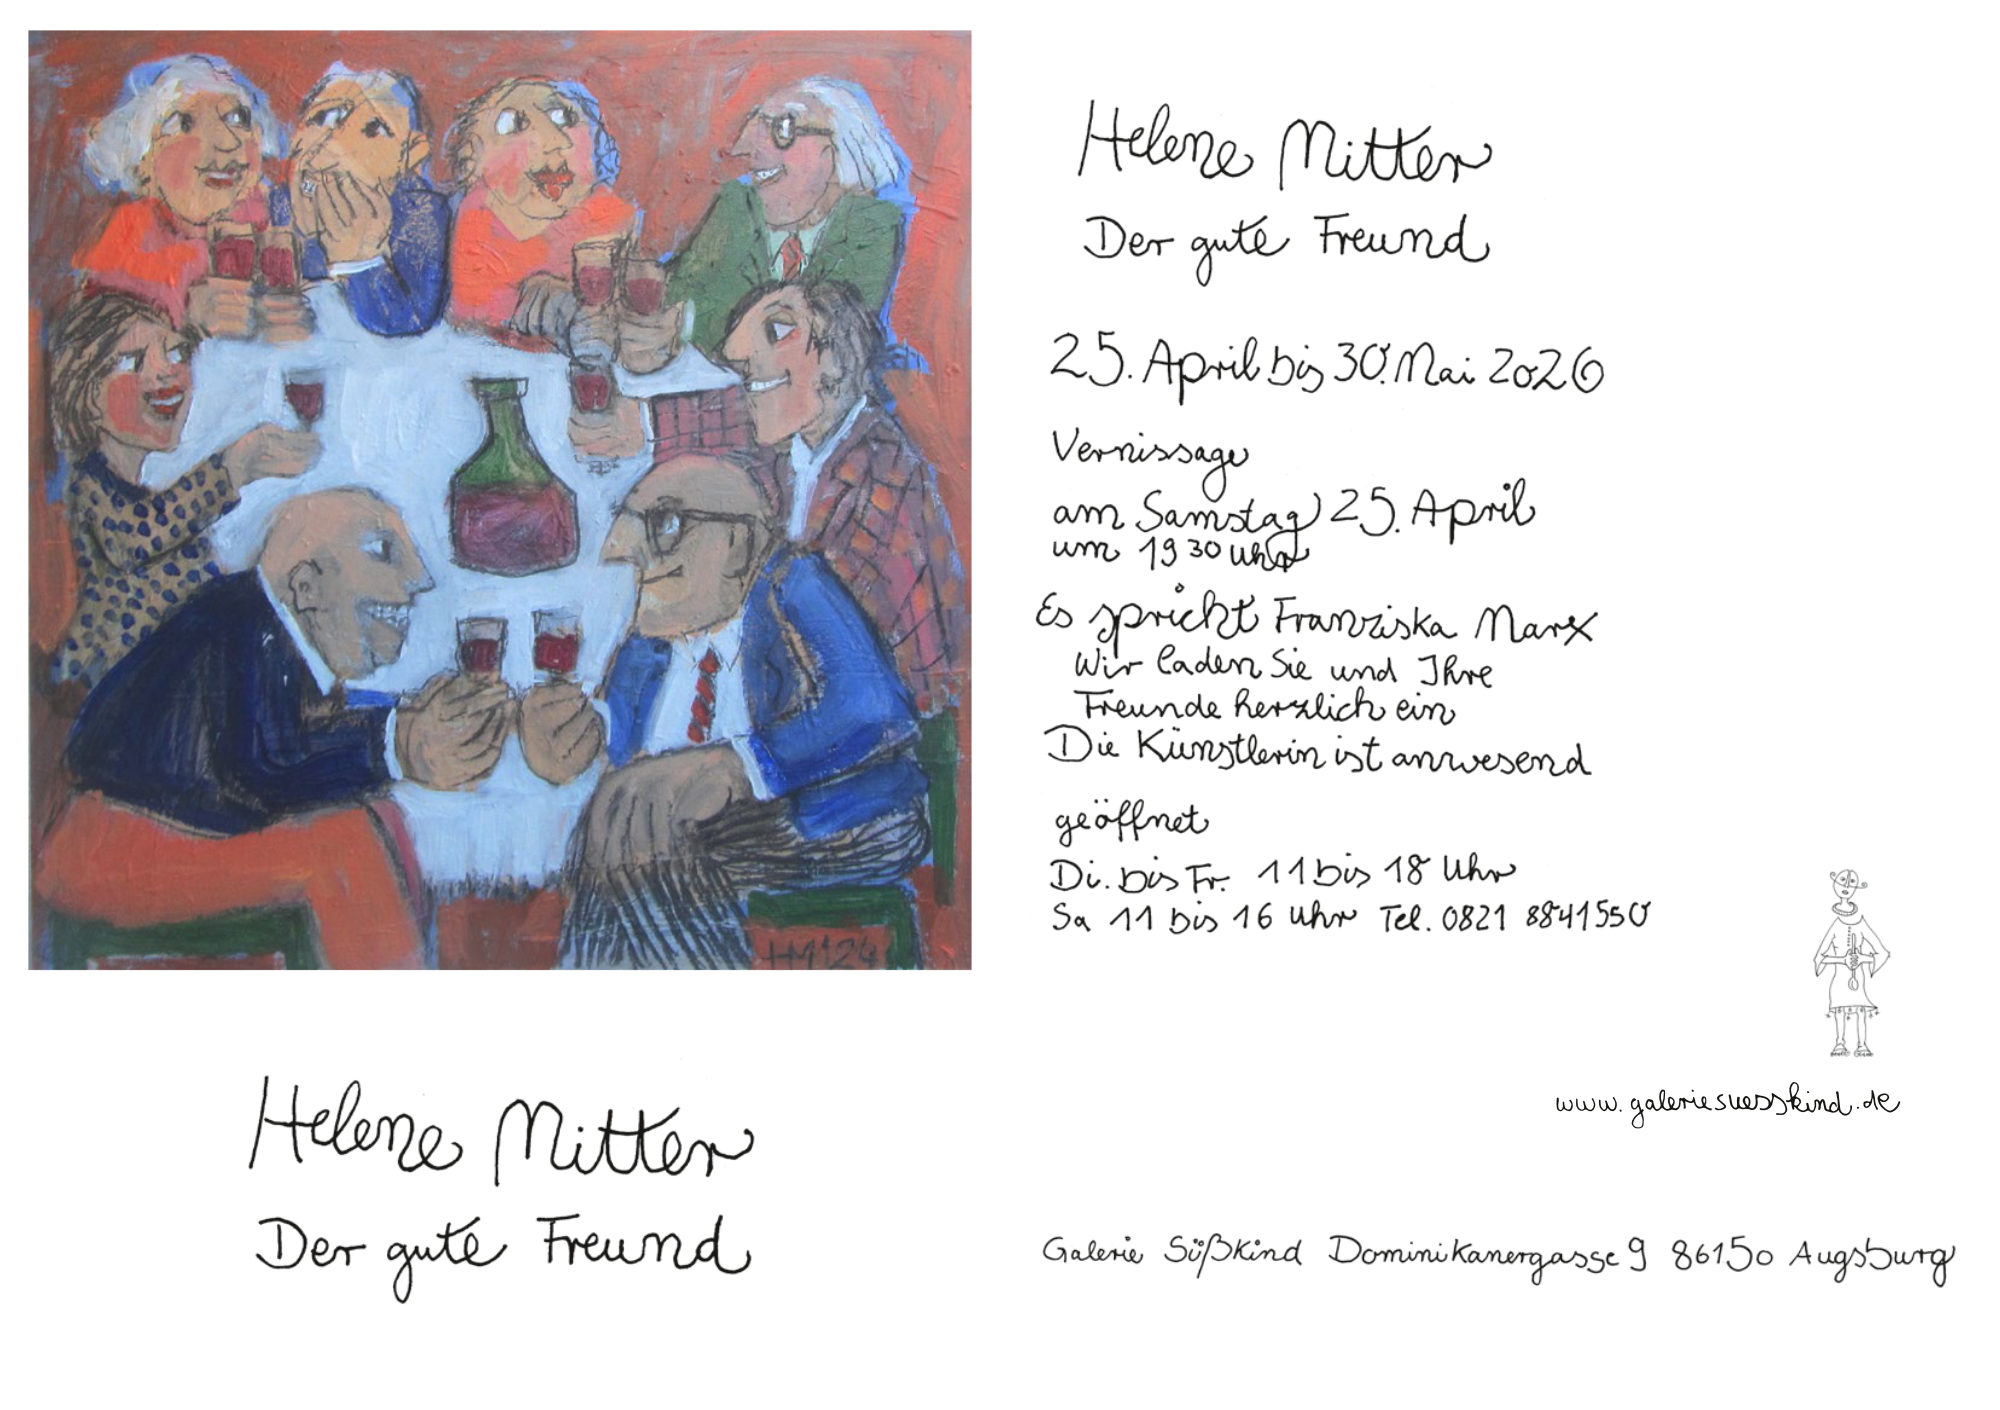 HM '24
Helene Mitter
Der gute Freund
Helene Mitter
Der gute Freund
25. April bis 30. Mai 2026
Vernissage
am Samstag 25. April
um 19 30 Uhr
Es spricht Franziska Marx
Wir laden Sie und Ihre
Freunde herzlich ein
Die Künstlerin ist anwesend
geöffnet
Di. bis Fr. 11 bis 18 Uhr
Sa 11 bis 16 Uhr Tel. 0821 8841550
www.galeriesuesskind.de
Galerie Süßkind Dominikanergasse 9 86150 Augsburg